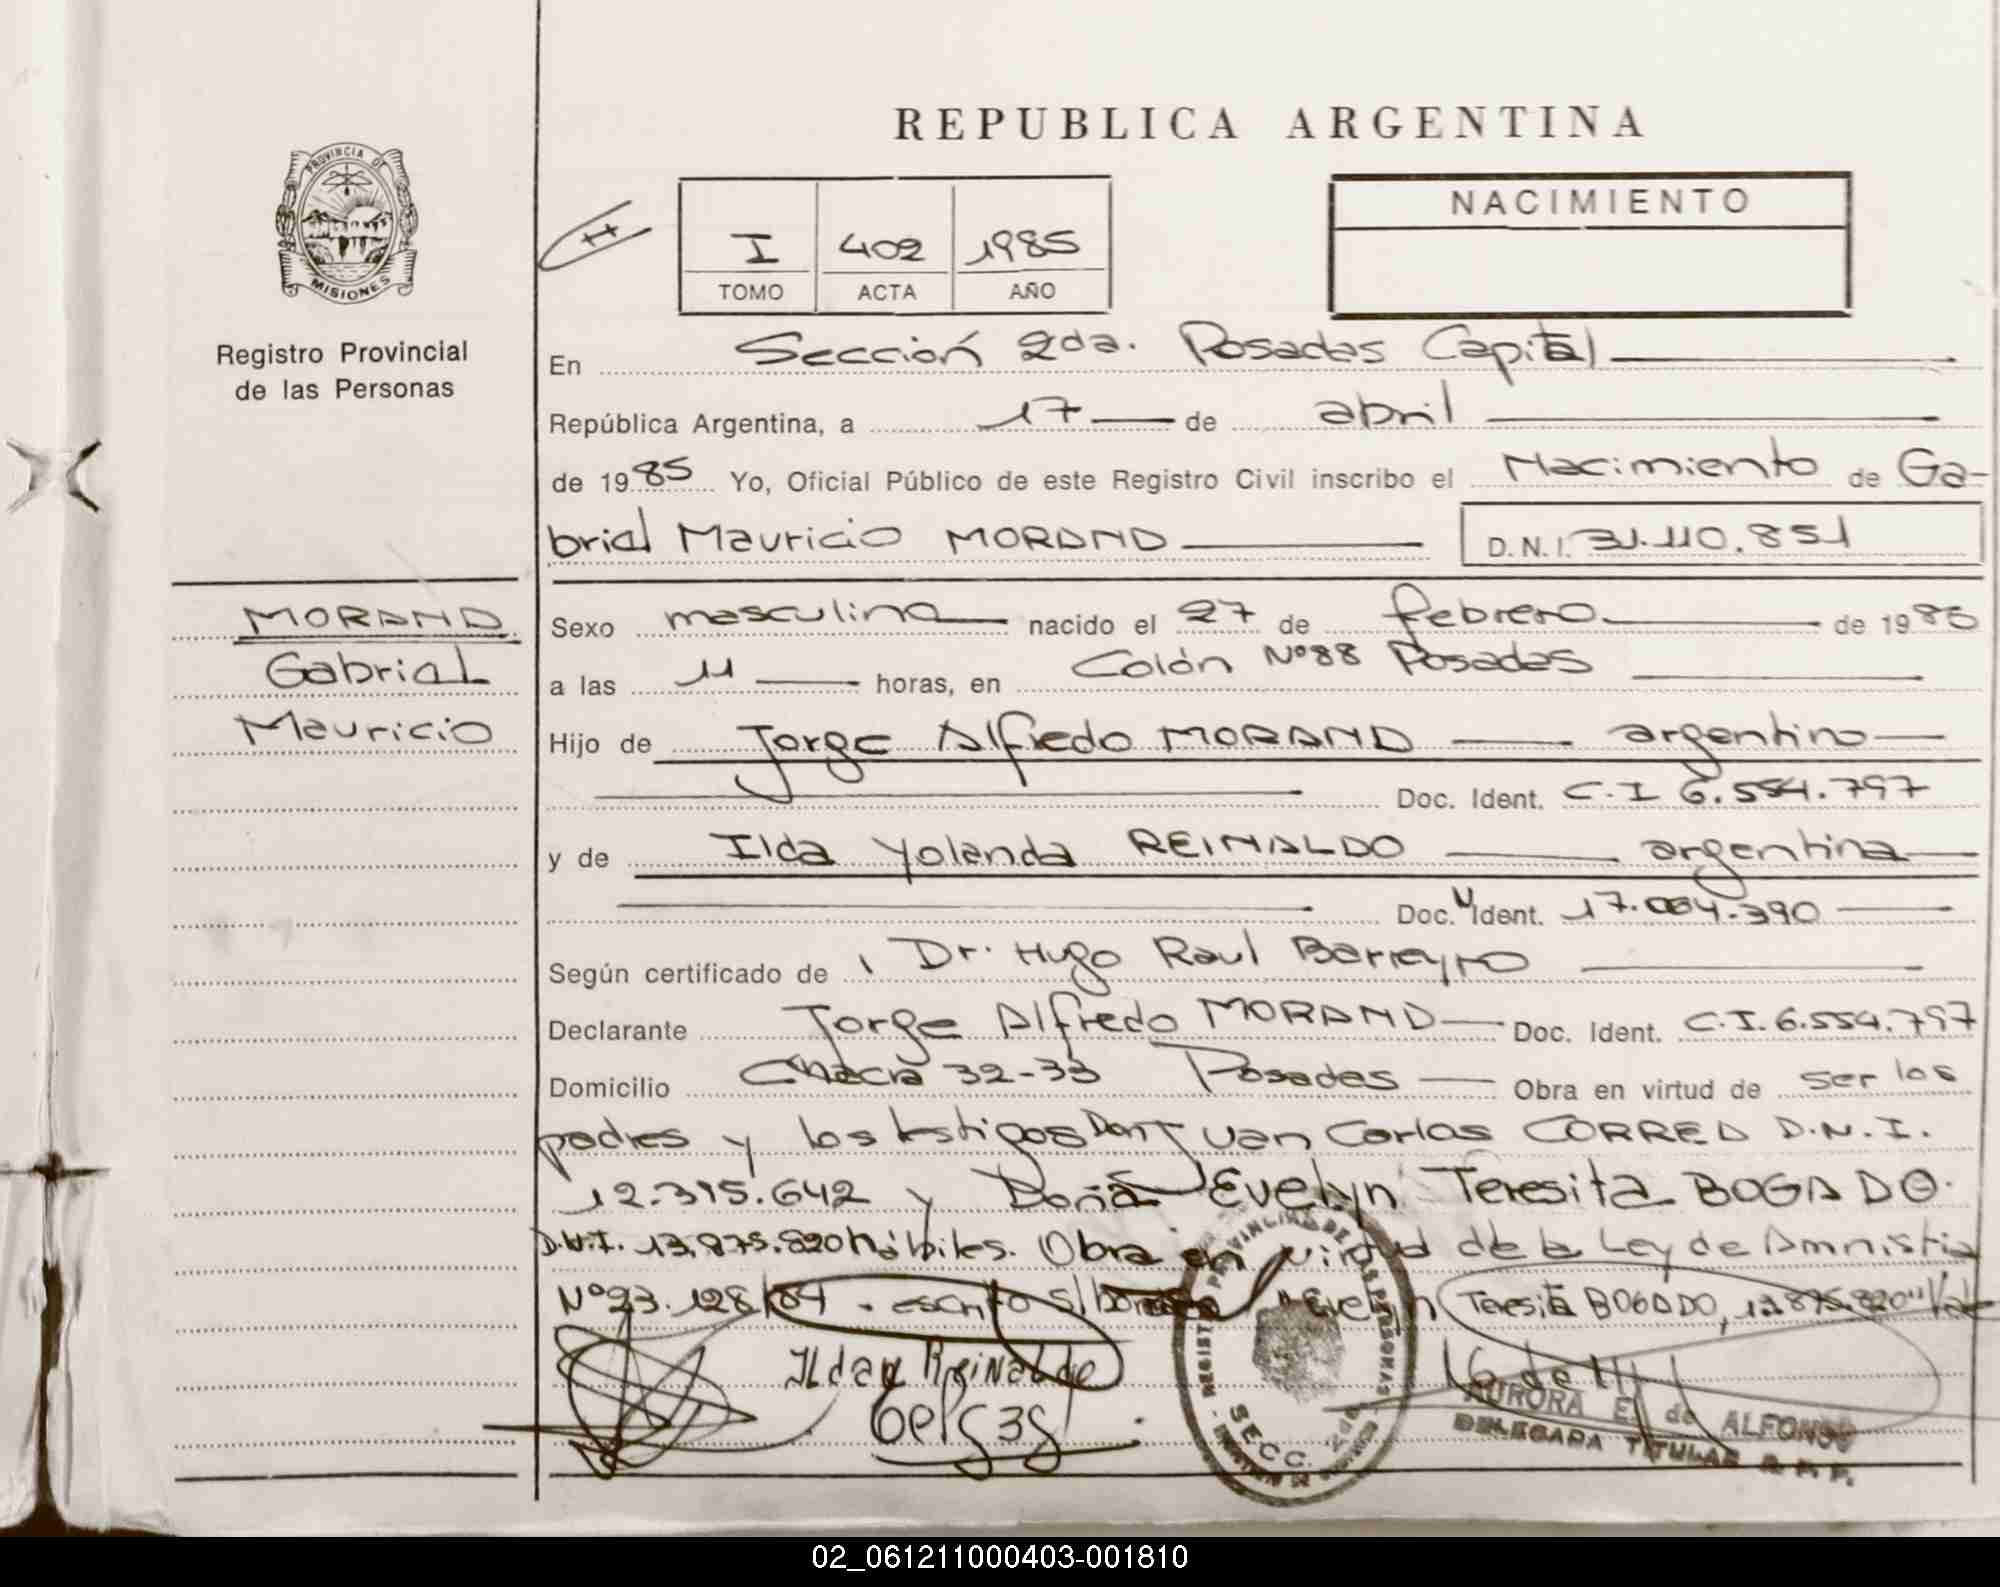 REPUBLICA ARGENTINA
PROVINCIA DE
MISIONES
Registro Provincial
de las Personas
I 402 1985
TOMO ACTA AÑO
NACIMIENTO
En Sección 2da. Posadas Capital
República Argentina, a 17 de abril
de 1985 Yo, Oficial Público de este Registro Civil inscribo el Nacimiento de Ga-
briel Mauricio MORAND D.N.I. 31.110.851
MORAND
Gabriel
Mauricio
Sexo masculino nacido el 27 de febrero de 1985
a las 11 horas, en Colón Nº88 Posadas
Hijo de Jorge Alfredo MORAND argentino
Doc. Ident. C.I 6.554.797
y de Ilda Yolanda REINALDO argentina
Doc. Ident. 17.064.390
Según certificado de Dr. Hugo Raul Barreyro
Declarante Jorge Alfredo MORAND Doc. Ident. C.I. 6.554.797
Domicilio Chacra 32-33 Posadas Obra en virtud de ser los
padres y los testigos Don Juan Carlos CORREA D.N.I.
12.315.642 y Doña Evelyn Teresita BOGADO.
D.N.I. 13.875.820 hábiles. Obra en virtud de la Ley de Amnistia
Nº23.128/84 - escrito s/ borrado "Evelyn Teresita BOGADO, 13.875.820" Vale
Ilda Y Reinaldo
AURORA E. de ALFONSO
DELEGADA TITULAR R. P. P.
SECC. 2da.
02_061211000403-001810